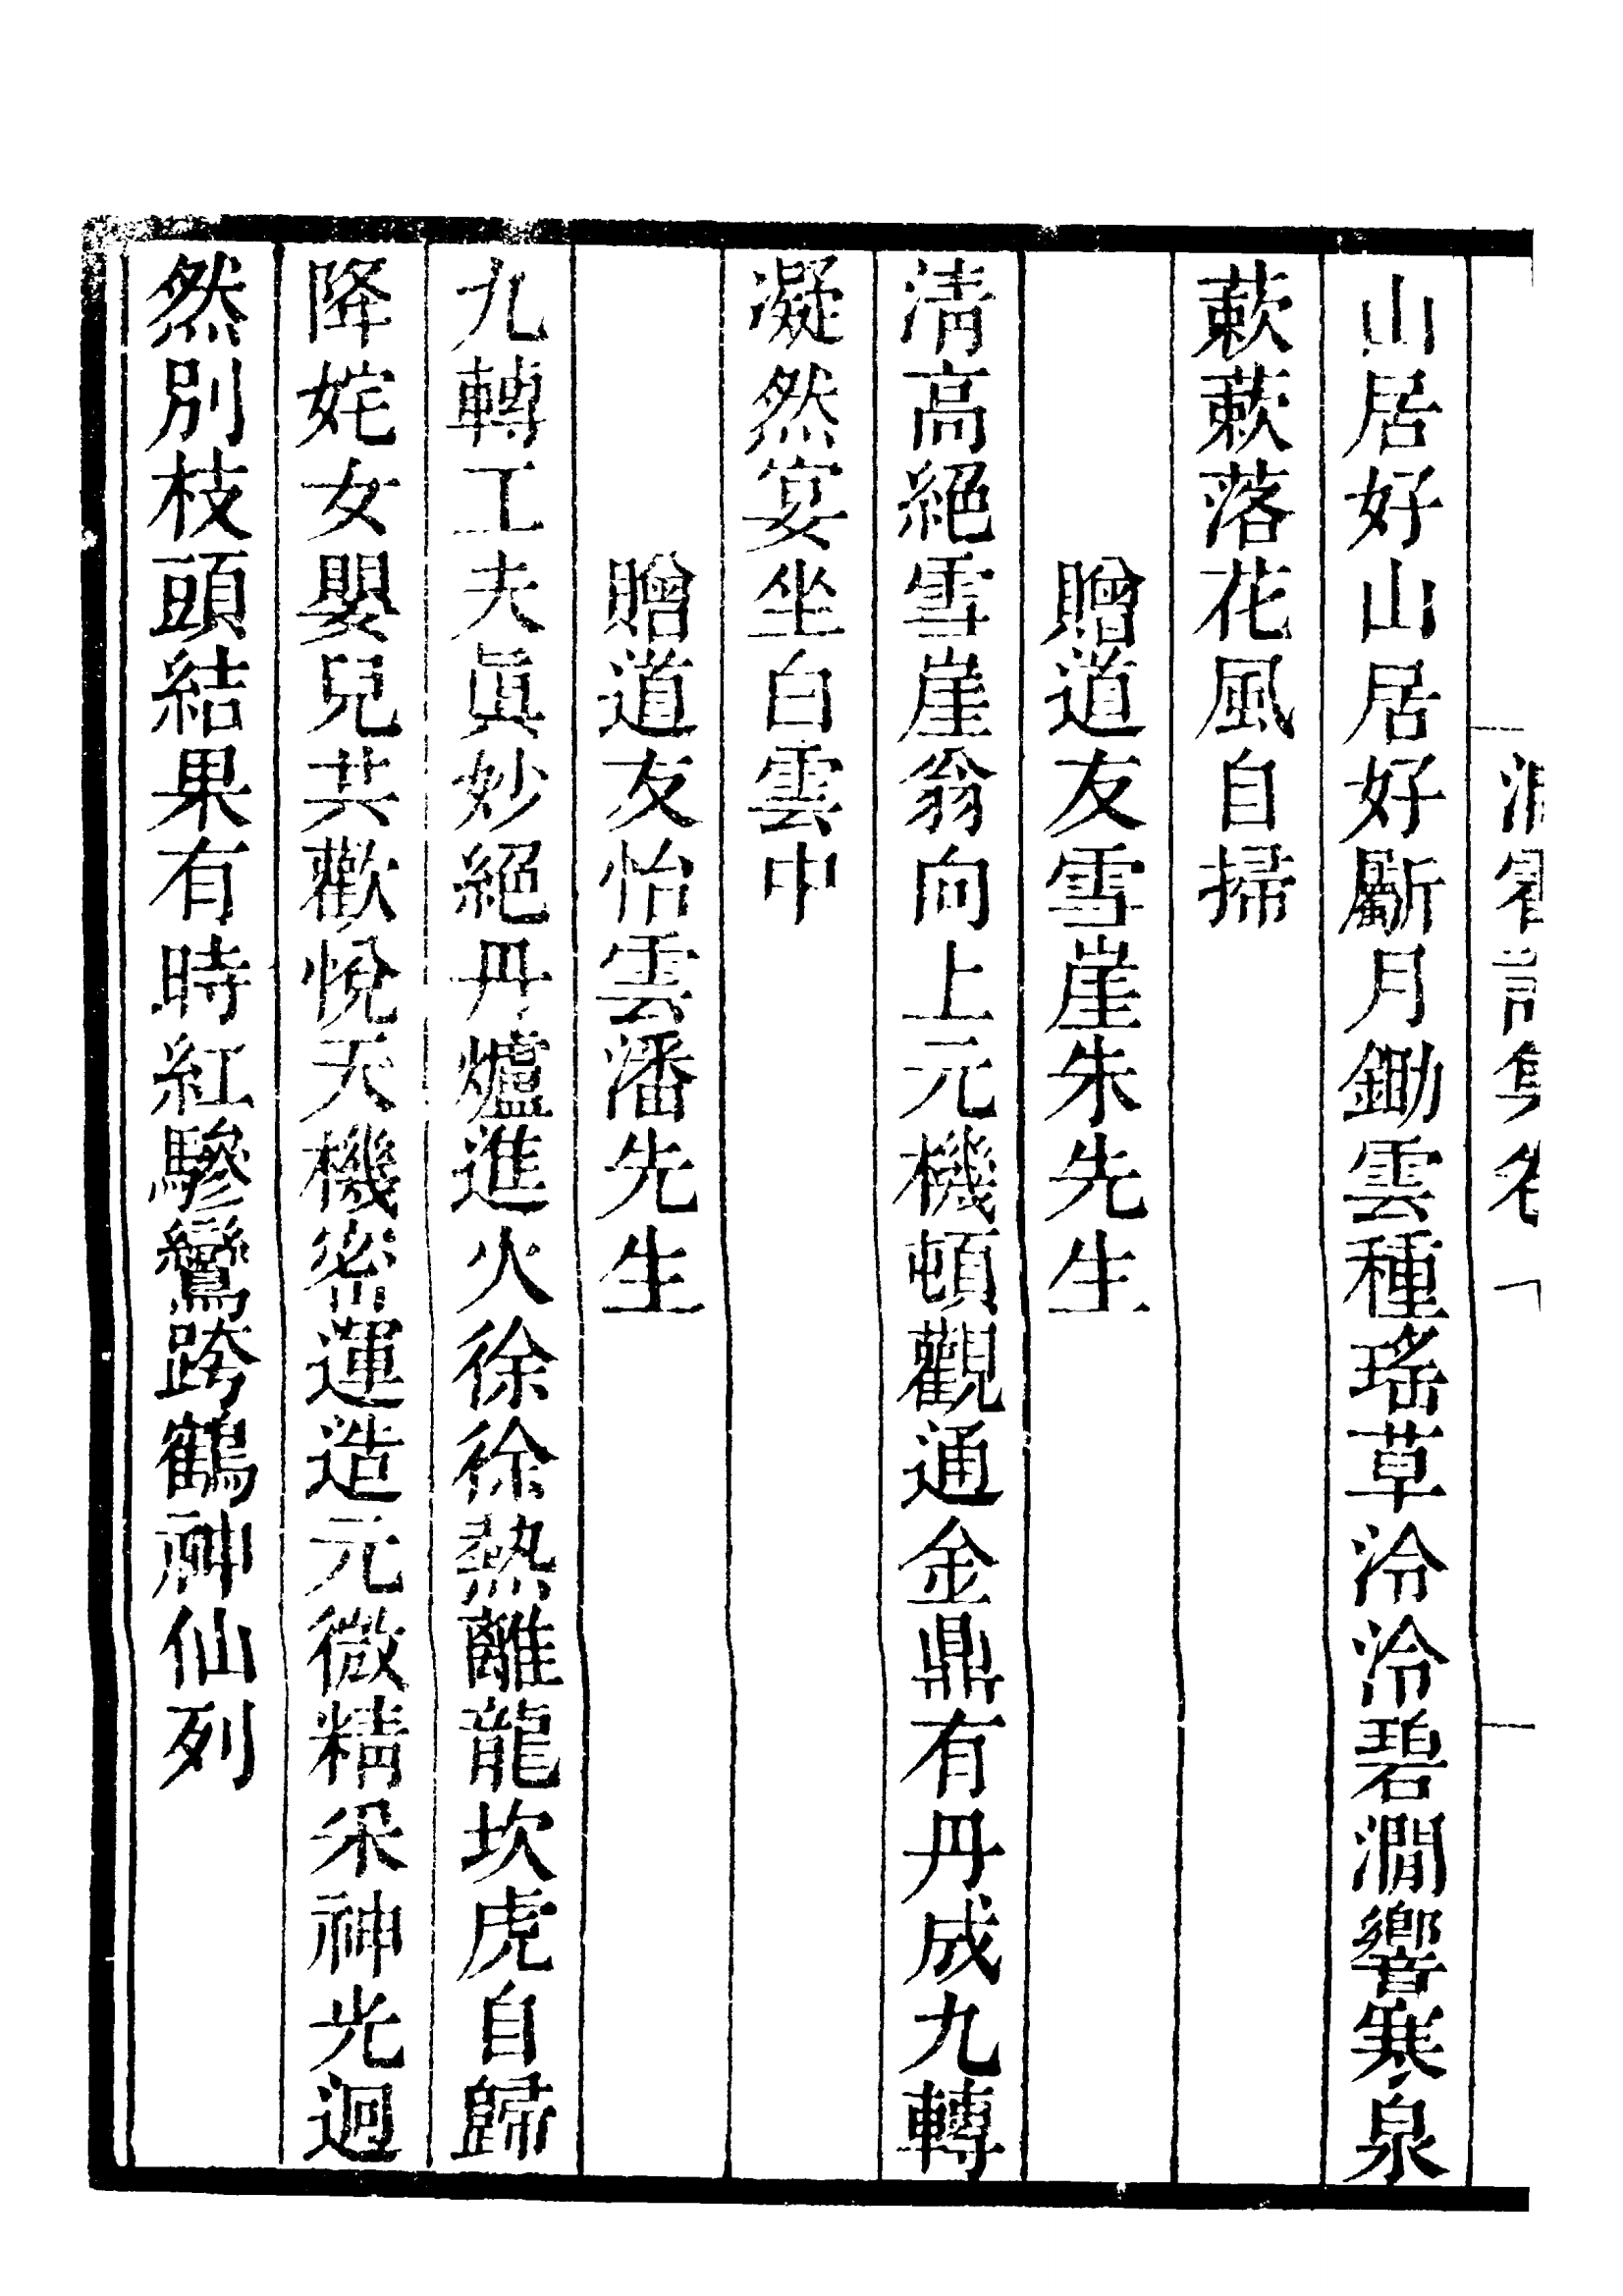 山居好山居好斸月鋤雲種瑤草泠泠碧澗響寒泉
蔌蔌落花風自掃
贈道友雪崖朱先生
清高絕雪崖翁向上元機頓觀通金鼎有丹成九轉
凝然宴坐白雲中
贈道友怡雲潘先生
九轉工夫眞妙絕丹爐進火徐徐熱離龍坎虎自歸
降姹女嬰兒共歡悅天機密運造元微精釆神光迥
然別枝頭結果有時紅驂鸞跨鶴神仙列